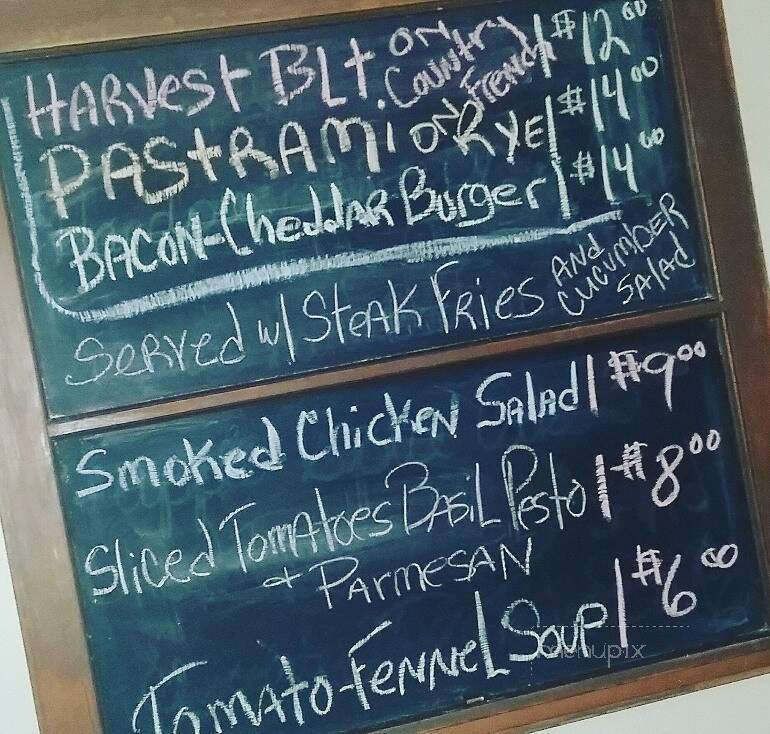 HARVEST BLT. ON COUNTRY FRENCH | $12.00
PASTRAMI ON RYE | $14.00
BACON-CheddAR Burger | $14.00
SERVEd w/ STEAK FRIES ANd CUCUMBER SALAd
Smoked Chicken SALAd | $9.00
Sliced Tomatoes BASIL Pesto | $8.00
+ PARMESAN
Tomato-FENNEL SOUP | $6.00
menupix